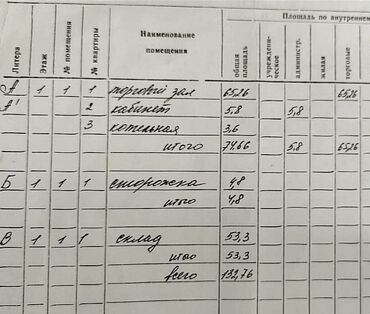 Литера Этаж № помещения № квартиры Наименование помещения Площадь по внутреннем
общая площадь учрежденческое администр. жилая торговые
А 1 1 1 торговый зал 65,26 65,26
А¹ 2 кабинет 5,8 5,8
3 котельная 3,6
итого 74,66 5,8 65,26
Б 1 1 1 сторожка 4,8
итого 4,8
В 1 1 1 склад 53,3
итого 53,3
всего 132,76